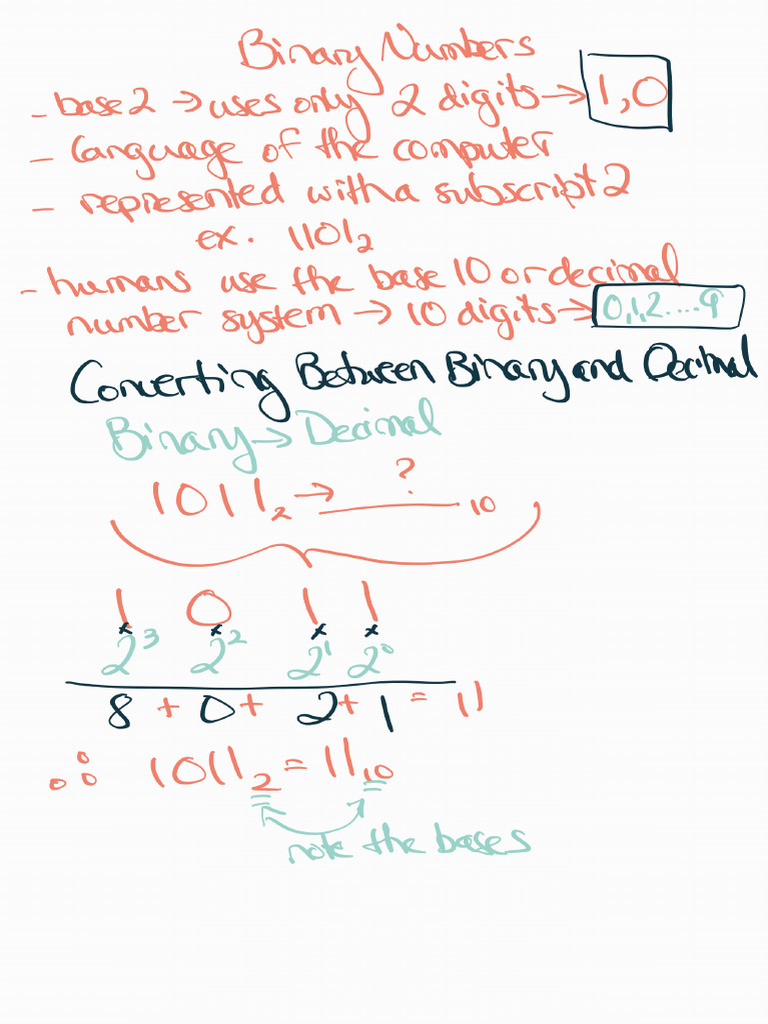 Binary Numbers
- base 2 → uses only 2 digits → 1,0
- language of the computer
- represented with a subscript 2
ex. 1101₂
- humans use the base 10 or decimal
number system → 10 digits → 0,1,2....9
Converting Between Binary and Decimal
Binary → Decimal
1011₂ → ? 10
1 0 1 1
x x x x
2³ 2² 2¹ 2⁰
8 + 0 + 2 + 1 = 11
∴ 1011₂ = 11₁₀
note the bases